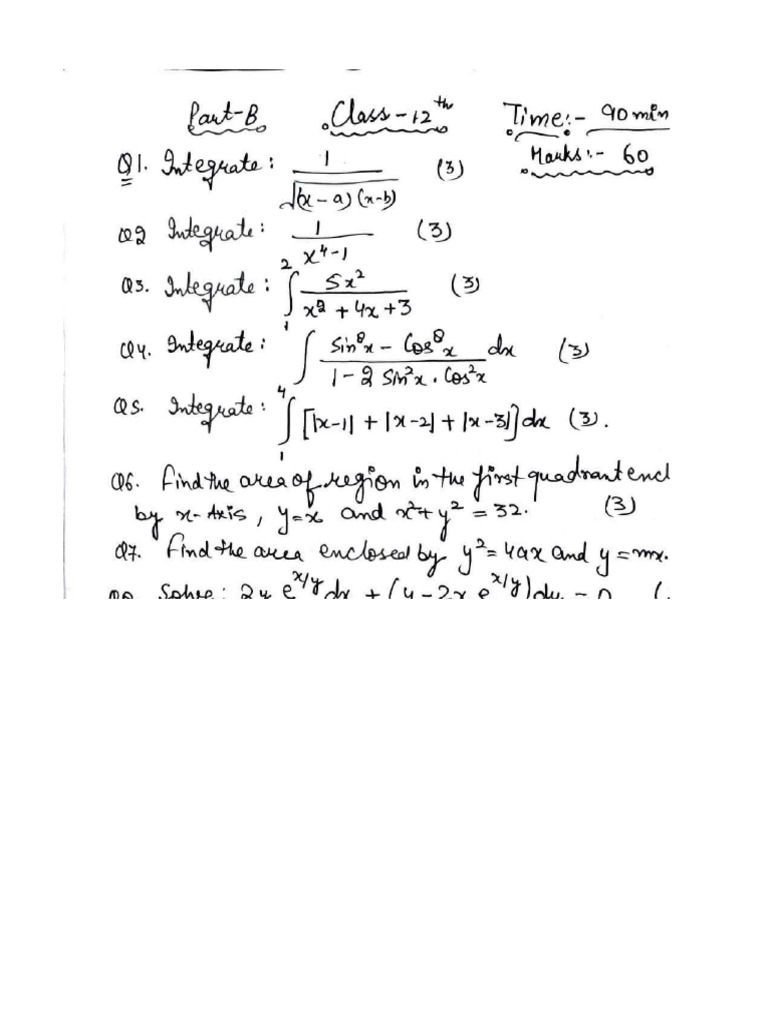 Part-B Class-12th Time:- 90 min
Marks:- 60
Q1. Integrate: 1/√(x-a)(x-b) (3)
Q2 Integrate: 1/x⁴-1 (3)
Q3. Integrate: ∫₁² 5x²/x²+4x+3 (3)
Q4. Integrate: ∫ sin⁸x - cos⁸x/1-2 sin²x. cos²x dx (3)
Q5. Integrate: ∫₁⁴ [|x-1| + |x-2| + |x-3|] dx (3).
Q6. Find the area of region in the first quadrant encl
by x-Axis, y=x and x²+y² = 32. (3)
Q7. Find the area enclosed by y²=4ax and y=mx.
Solve: 2y e^x/y dx + (y-2x e^x/y) dy = 0 (